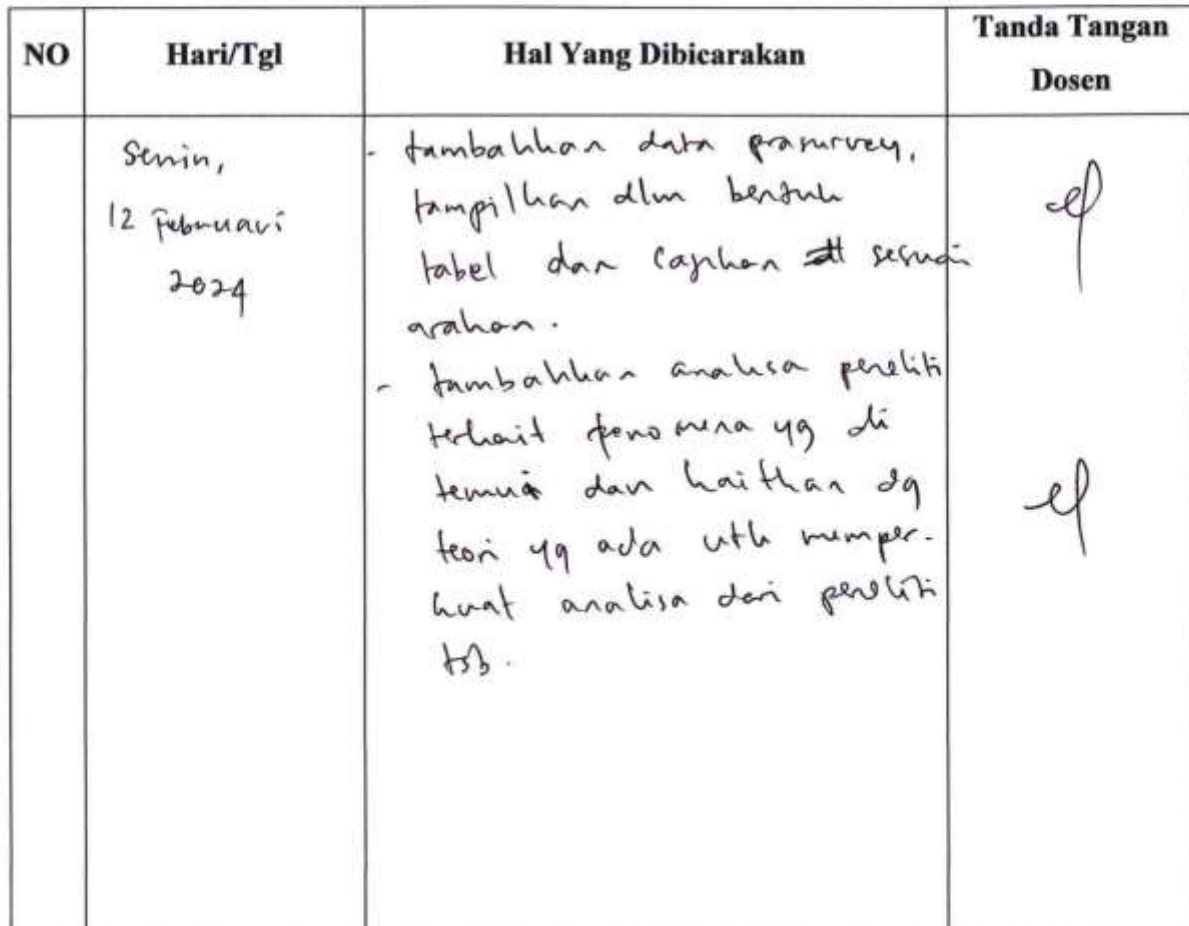 NO
Hari/Tgl
Hal Yang Dibicarakan
Tanda Tangan
Dosen
Senin,
12 Februari
2024
- tambahkan data prasurvey,
tampilkan dlm bentuk
tabel dan sajikan sesuai
arahan.
- tambahkan analisa peneliti
terkait fenomena yg di
temui dan kaitkan dg
teori yg ada utk memper-
kuat analisa dari peneliti
tsb.